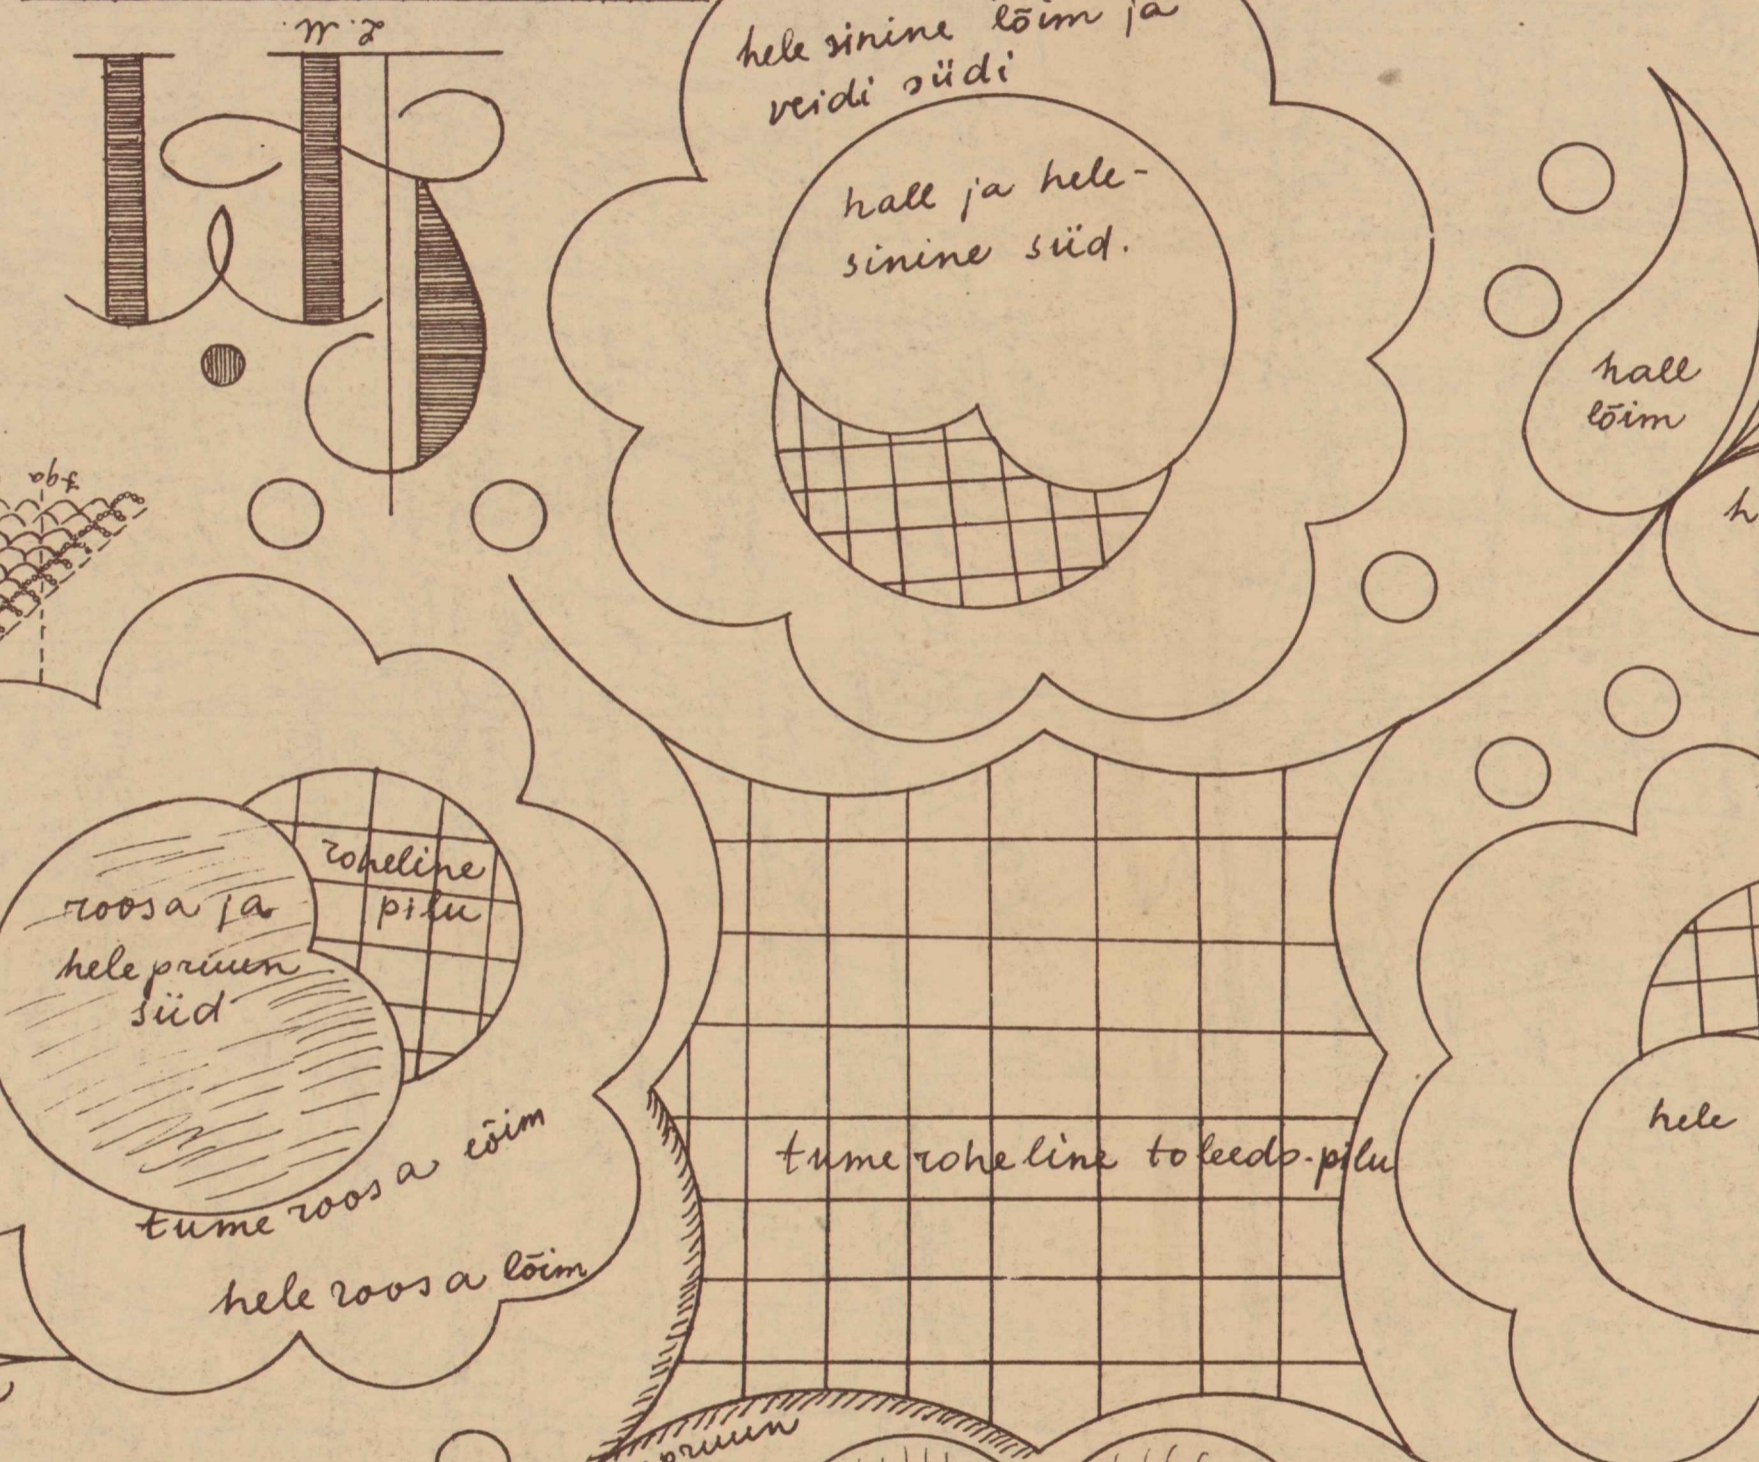 L. M.
hele sinine lõim ja
veidi siidi
hall ja hele-
sinine siid.
hall
lõim
h
roheline
pilu
roosa ja
hele pruun
siid
tume roosa lõim
hele roosa lõim
tume roheline toleedo-pilu
hele
pruun